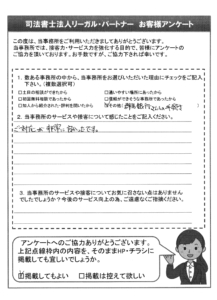 司法書士法人リーガル・パートナー お客様アンケート
この度は、当事務所をご利用いただきましてありがとうございます。
当事務所では、接客力・サービス力を強化する目的で、皆様にアンケートの
ご協力を頂いております。お手数ですが、ご協力下さればと幸いです。
1．数ある事務所の中から、当事務所をお選びいただいた理由にチェックをご記入
下さい。(複数選択可)
□土日の相談ができたから □通いやすい場所にあったから
□初回無料相談であったから □信頼ができそうな事務所であったから
□知人から紹介された・評判を聞いたから
2．当事務所のサービスや接客について感じたことをご記入ください。
ご対応が非常に良かったです。
3．当事務所のサービスや接客についてお気に召さない点はありません
でしたでしょうか？今後のサービス向上の為、ご遠慮なくご指摘ください。
アンケートへのご協力ありがとうございます。
上記点線枠内の内容を、そのままHP・チラシに
掲載しても宜しいでしょうか。
☑掲載してもよい □掲載は控えて欲しい